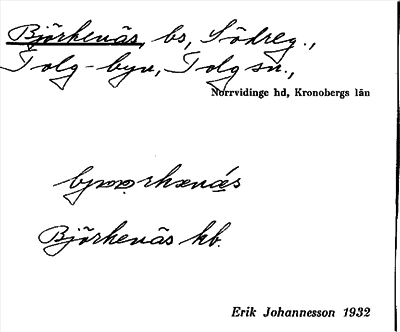 Björkenäs, bs, Södreg.,
Tolg-byn, Tolg sn.,
Norrvidinge hd, Kronobergs län
Björkenäs kb.
Erik Johannesson 1932